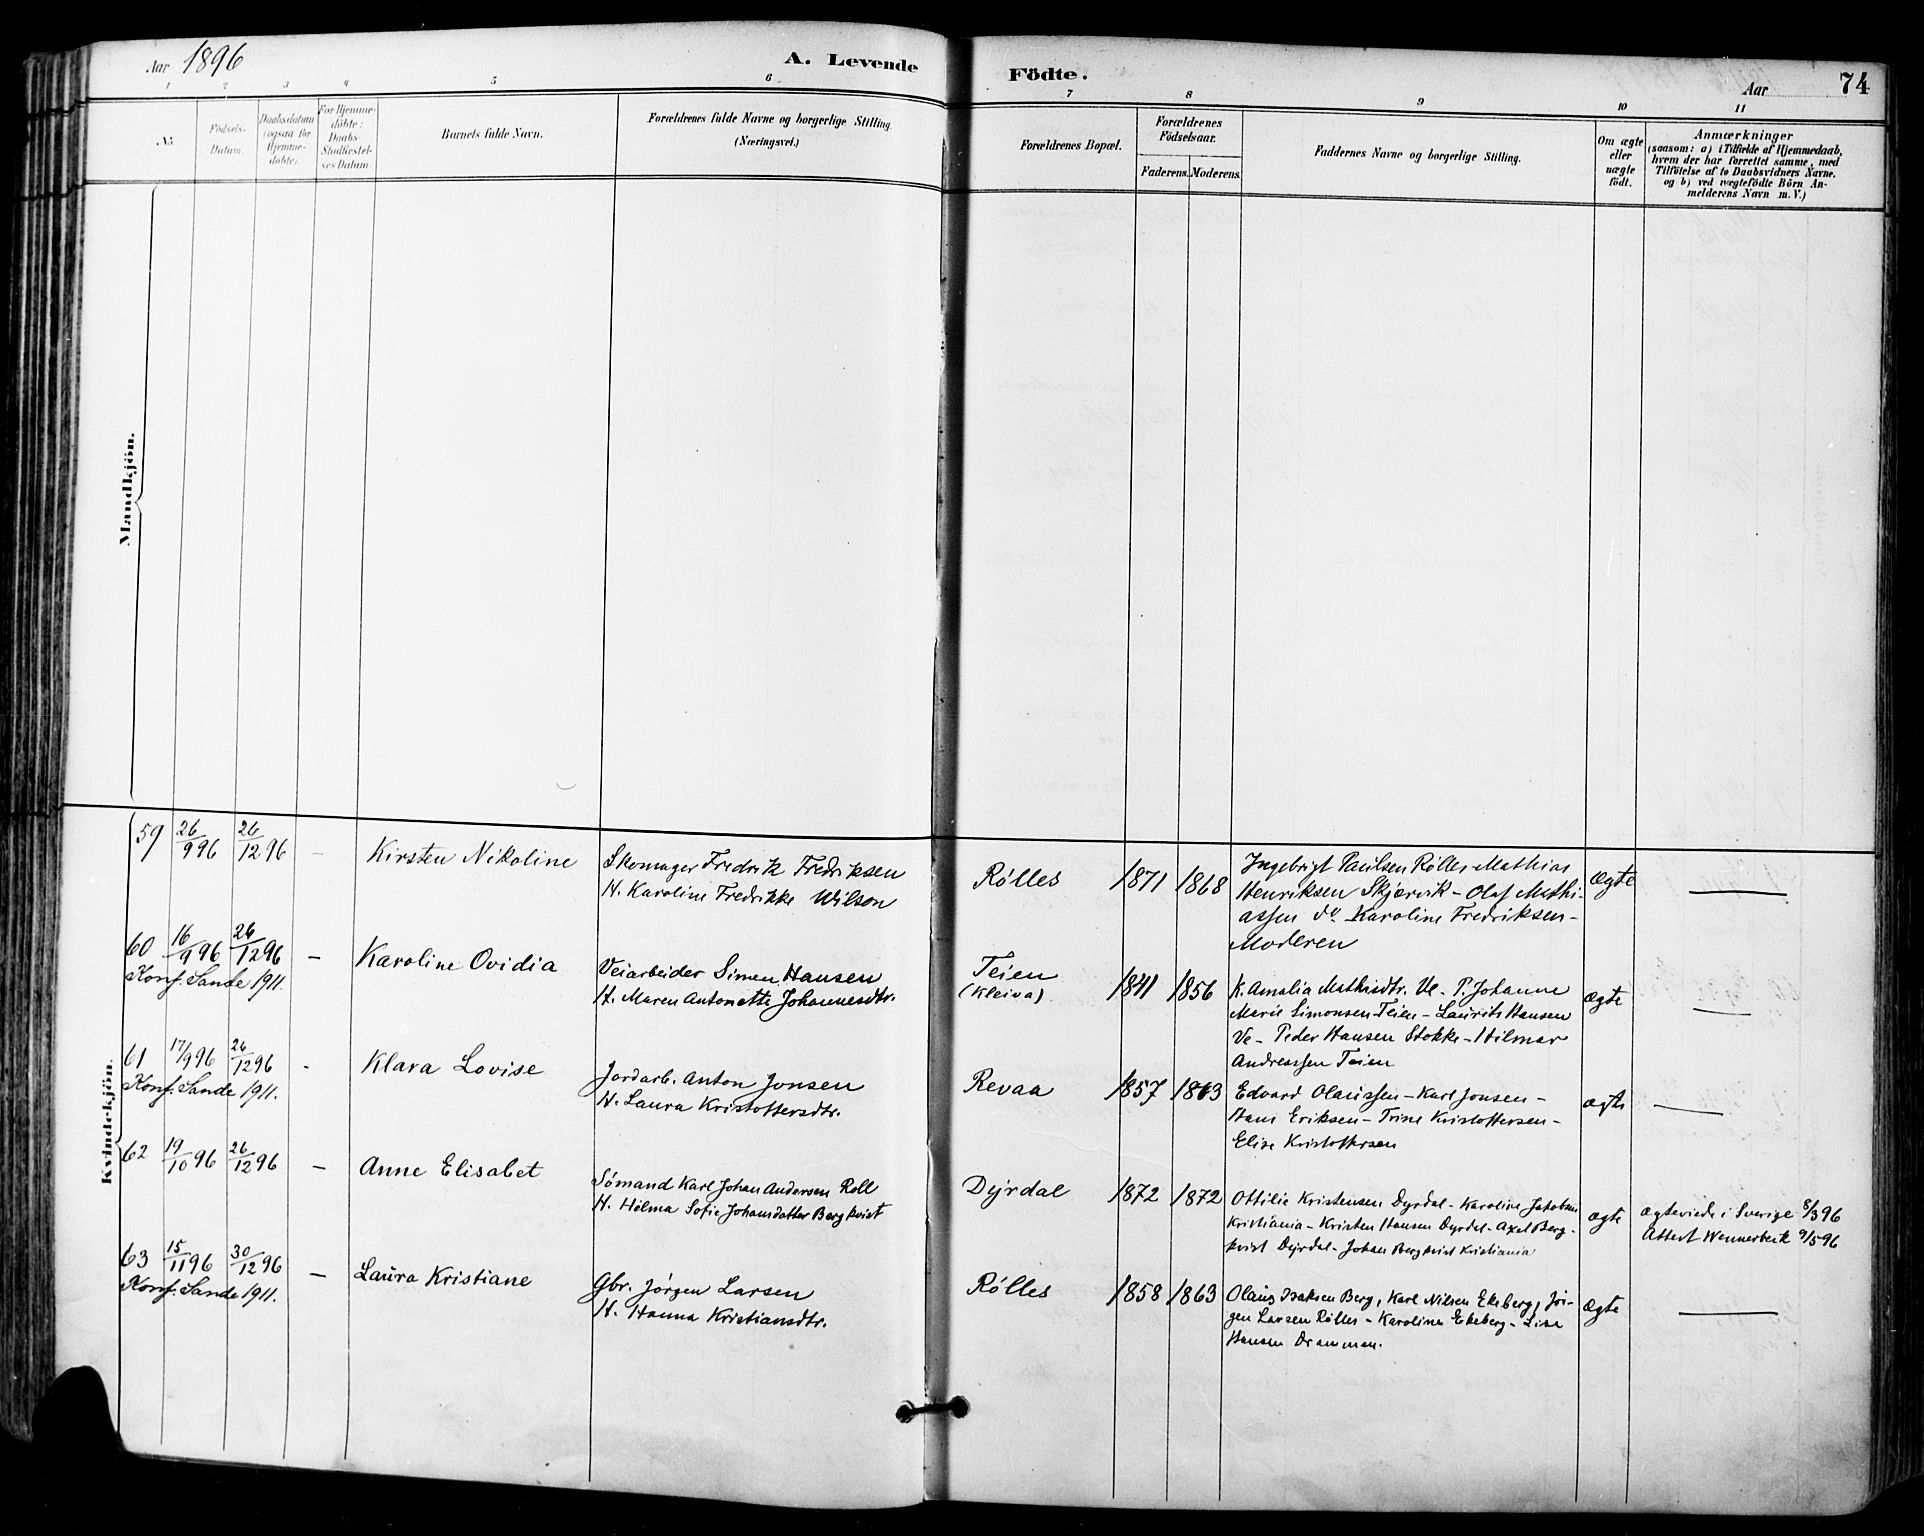 Aar 1896
A. Levende Födte.
Aar
74
1 2 3 4 5 6 7 8 9 10 11
No
Födsels-
Datum.
Daabsdatum
(ogsaa for
Hjemme-
døbte).
For Hjemme-
döbte:
Daabs-
Stadfæstel-
ses Datum.
Barnets fulde Navn.
Forældrenes fulde Navne og borgerlige Stilling.
(Næringsvei.)
Forældrenes Bopæl.
Forældrenes
Födselsaar.
Faderens. Moderens.
Faddernes Navne og borgerlige Stilling.
Om ægte
eller
uægte
födt.
Anmærkninger
(saasom: a) i Tilfælde af Hjemmedaab,
hvem der har forrettet samme, med
Tilföielse af to Daabsvidners Navne,
og b) ved uægtefödte Börn An-
melderens Navn m. V.)
Mandkjön.
Kvindekjön.
59 26/9 96 26/12 96 – Kirsten Nikoline
Skomager Fredrik Fredriksen
H. Karoline Fredrikke Wilson
Rølles 1871 1868
Ingebrigt Paulsen Rølles Mathias
Henriksen Skjærvik – Olaf Mathi-
assen do Karoline Fredriksen –
Moderen
Ægte —
60 16/9 96 26/12 96 – Karoline Ovidia
Konf. Sande 1911.
Veiarbeider Simen Hansen
H. Maren Antonette Johannesdtr.
Teien
(Kleiva)
1841 1856
K. Amalia Mathisdtr. Ve – P. Johanne
Marie Simonsen Teien – Laurits Hansen
Ve – Peder Hansen Stokke – Hilmar
Andreassen Teien
ægte —
61 17/9 96 26/12 96 - Klara Lovise
Konf. Sande 1911.
Jordarb. Anton Jonsen
H. Laura Kristoffersdtr.
Revaa 1857 1863
Edvard Olaussen – Karl Jonsen –
Hans Eriksen – Trine Kristoffersen –
Elise Kristoffersen
ægte —
62 19/10 96 26/12 96 – Anne Elisabet
Sømand Karl Johan Andersen Roll
H. Hilma Sofie Johansdatter Bergkvist
Dyrdal 1872 1872
Ottilie Kristensen Dyrdal – Karoline Jakobsen
Kristiania – Kristen Hansen Dyrdal – Axel Berg-
kvist Dyrdal – Johan Bergkvist Kristiania
ægte
ægteviede i Sverige 8/3 96
Attest Wennerbeck 9/5 96
63 15/11 96 30/12 96 – Laura Kristiane
Konf. Sande 1911.
Gbr. Jörgen Larsen
H. Hanna Kristiansdtr.
Rølles 1858 1863
Olaus Isaksen Berg, Karl Nilsen Ekeberg, Jör-
gen Larsen Rølles – Karoline Ekeberg – Lise
Hansen Drammen.
ægte —